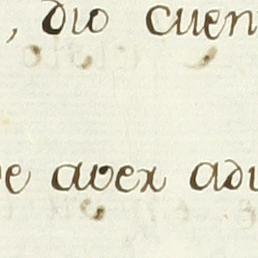 , dio cuen
e aver adi